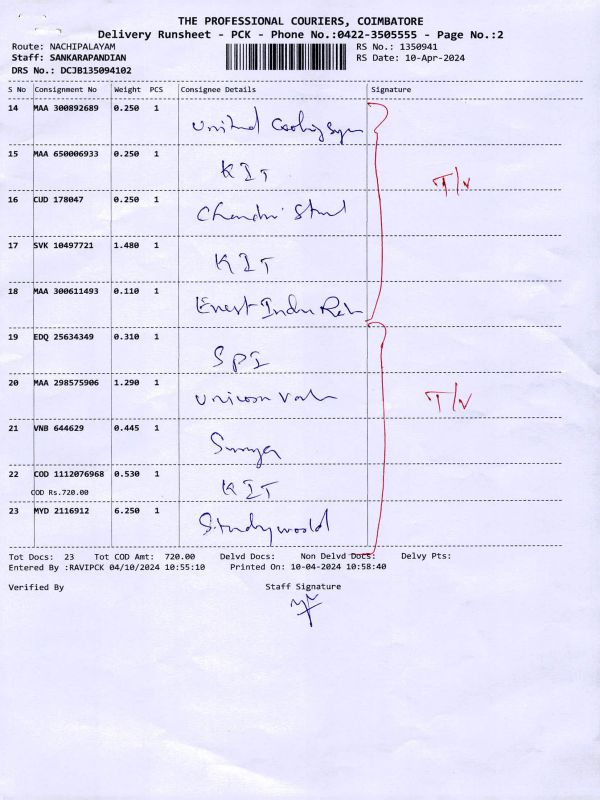 THE PROFESSIONAL COURIERS, COIMBATORE
Delivery Runsheet - PCK - Phone No.:0422-3505555 - Page No.:2
Route: NACHIPALAYAM RS No.: 1350941
Staff: SANKARAPANDIAN RS Date: 10-Apr-2024
DRS No.: DCJB135094102
S No Consignment No Weight PCS Consignee Details Signature
14 MAA 300892689 0.250 1
United Cooling
15 MAA 650006933 0.250 1
KIT
T/v
16 CUD 178047 0.250 1
17 SVK 10497721 1.480 1
KIT
18 MAA 300611493 0.110 1
19 EDQ 25634349 0.310 1
SPI
20 MAA 298575906 1.290 1
Unicorn
T/v
21 VNB 644629 0.445 1
22 COD 1112076968 0.530 1
KIT
COD Rs.720.00
23 MYD 2116912 6.250 1
Studyworld
Tot Docs: 23 Tot COD Amt: 720.00 Delvd Docs: Non Delvd Docs: Delvy Pts:
Entered By :RAVIPCK 04/10/2024 10:55:10 Printed On: 10-04-2024 10:58:40
Verified By Staff Signature